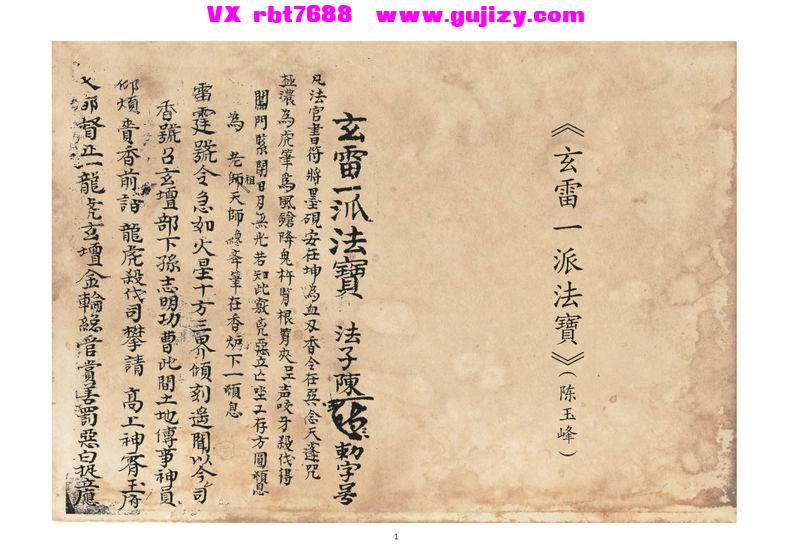 VX rbt7688 www.gujizy.com
《玄雷一派法寶》(陈玉峰)
玄雷一派法寶 法子陳 勅字号
凡法官書符將墨硯安在坤為血刃香令在巽念天蓬咒
極濃為虎筆為風鎗降鬼杵 根 夾 声咬牙殺伐得
閣門緊閉日月無光若知此竅 惡立亡坐工存方圓煩息
為 老師祖天師 筆在香炉下一煩息
雷霆號令急如火星十方三界傾刻遙聞以今司
香號召玄壇部下孫志明功曹此間土地傳事神員
仰煩賫香前詣龍虎殺伐司攀請 高上神霄玉府
大都督正一龍虎玄壇金輪總管賞善罰惡白捉立應
1